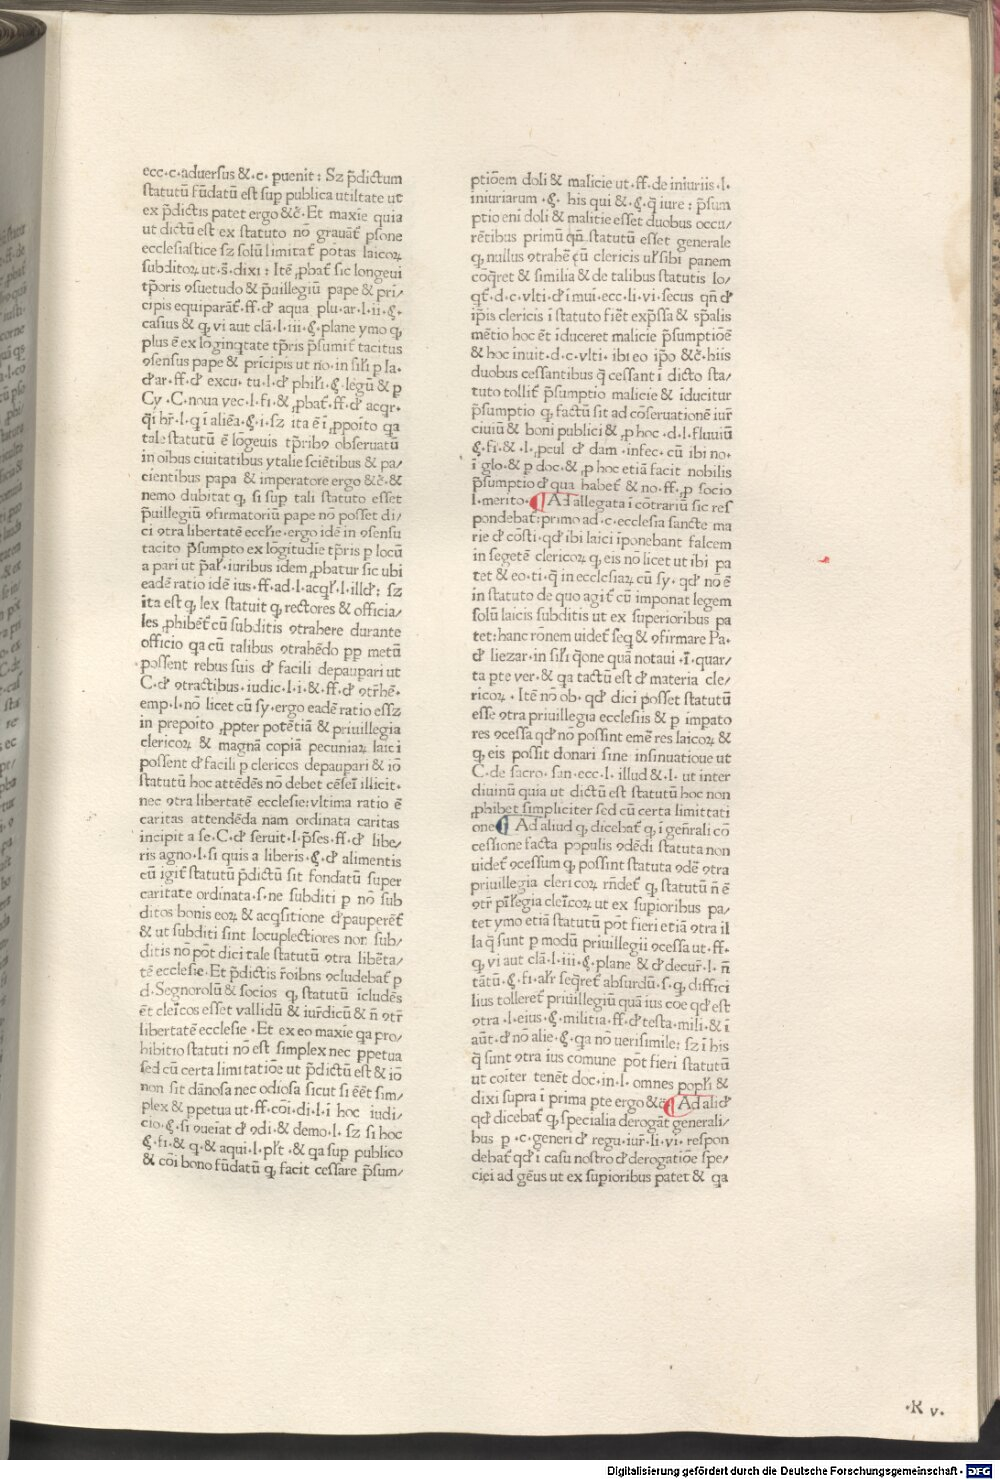 ecc·c·aduersus &·c· puenit: Sz p̄dictum
ſtatutū fūdatū eſt sup publica utiltate ut
ex p̄dictis patet ergo &c̄·Et maxīe quia
ut dictū eſt ex ſtatuto nō grauāt̄ pſone
eccleſiaſtice ſz ſolū limitat̄ p̄otas laicoꝝ
ſubditoꝝ ut·s̄·dixi: Itē ꝓbat̄ ſic longeui
tp̄oris ꝯſuetudo & p̄uillegiū pape & pri/
cipis equiparāt̄·ff·đ aqua plu·ar·l·ii·§·
caſius & ꝙ ui aut clā·l·iii·§·plane ymo ꝙ
plus ē ex lōginqtate tp̄ris p̄ſumit̄ tacitus
ꝯſensus pape & prīcipis ut no·in ſiłi p la·
đ ar·ff·đ excu·tu·l·đ phiłi·§·legū & p
Cy·C·noua vec·l·fi·& ꝓbat̄·ff·đ acqr·
q̄i hr̄·l·q i aliēa·§·i·ſz ita ē ī ꝓpoito qa
tale ſtatutū ē lōgeuis tp̄ribꝯ obſeruatū
in oībus ciuitatibus ytalie ſciētibus & pa/
cientibus papa & imperatore ergo &c̄·&
nemo dubitat ꝙ ſi ſup tali ſtatuto eſſet
p̄uillegiū ꝯfirmatoriū pape nō poſſet di/
ci ꝯtra libertatē eccłie·ergo idē in ꝯſenſu
tacito p̄ſumpto ex lōgitudīe tp̄ris p locū
a pari ut p̄ał·iuribus idem ꝓbatur ſic ubi
eadē ratio idē ius·ff·ad·l·acqł·l·illđ: ſz
ita eſt ꝙ lex ſtatuit ꝙ rectores & officia/
les ꝓhibēt̄ cū ſubditis ꝯtrahere durante
officio qa cū talibus ꝯtrahēdo pp metū
poſſent rebus ſuis đ facili depaupari ut
C·đ ꝯtractibus·iudic·l·i·& ff·đ ꝯtr̄hē·
emp·l·nō licet cū ſy·ergo eadē ratio eſſz
in prepoito ꝓpter potētiā & priuillegia
clericoꝝ & magnā copiā pecuniaꝝ laici
poſſent đ facili p clericos depaupari & iō
ſtatutū hoc attēdēs nō debet cēſeī illicit·
nec ꝯtra libertatē eccleſie: vltima ratio ē
caritas attendēda nam ordinata caritas
incipit a ſe·C·đ ſeruit·l·p̄ſes·ff·đ libe/
ris agno·l·ſi quis a liberis·§·đ alimentis
cū igit̄ ſtatutū p̄dictū ſit fondatū ſuper
caritate ordinata·ſ·ne ſubditi p nō ſub
ditos bonis eoꝝ & acqſitione đpauperēt̄
& ut ſubditi ſint locuplectiores non ſub/
ditis nō pōt dici tale ſtatutū ꝯtra liberta/
tē eccleſie·Et p̄dictis r̄oibns ꝯcludebat̄ p
d·Segnorolū & ſocios ꝙ ſtatutū īcludēs
ēt cleīcos eſſet vallidū & iur̄dicū & n̄ ꝯtr̄
libertatē eccleſie·Et ex eo maxīe qa pro/
hibitio ſtatuti nō eſt ſimplex nec ppetua
ſed cū certa limitatiōe ut p̄dictū eſt & iō
non ſit dānoſa nec odioſa ſicut ſi eēt ſim/
plex & ppetua ut·ff·cōi·di·l·ī hoc iudi/
cio·§·ſi ꝯueīat đ ꝯdi·& demo·l·ſz ſi hoc
§·fi·& q·& aqui·l·pł̄t·& qa ſup publico
& cōi bono fūdatū ꝙ facit ceſſare p̄ſum/
ptiōem doli & malicie ut·ff·de iniuriis·l·
iniuriarum·§· his qui &·§·q iure: p̄ſum
ptio eni doli & malitie eſſet duobus occu/
rētibus primū qn̄ ſtatutū eſſet generale
ꝙ nullus ꝯtrahēt cū clericis uł ſibi panem
cōq̄ret & ſimilia & de talibus ſtatutis lo/
qt̄·d·c·vlti·đ īmui·ecc·li·vi·ſecus qn̄ đ
ip̄is clericis ī ſtatuto fiēt exp̄ſſa & ſp̄alis
mētio hoc ēt iduceret malicie p̄ſumptiōē
& hoc inuit·d·c·vlti·ibi eo ip̄o &c̄·hiis
duobus ceſſantibus q̄ ceſſant ī dicto ſta/
tuto tollit̄ p̄ſumptio malicie & iducitur
p̄ſumptio ꝙ factū ſit ad cōſeruationē iur̄
ciuiū & boni publici & ꝓ hoc·d·l·fluuiū
§·fi·&·l·ꝓcul đ dam·infec·cū ibi no·
ī glo·& p doc·& ꝓ hoc etiā facit nobilis
p̄ſumptio đ qua habet̄ & no·ff·ꝓ ſocio
l·merito·¶Ad allegata i cōtrariū ſic reſ
pondebat̄: primo ad·c·eccleſia ſancte ma
rie đ cōſti·qđ ibi laici īponebant falcem
in ſegetē clericoꝝ ꝙ eis nō licet ut ibi pa
tet & eo·ti·q̄ in eccleſiaꝝ cū ſy·qđ nō ē
in ſtatuto de quo agit̄ cū imponat legem
ſolū laicis ſubditis ut ex ſuperioribus pa
tet: hanc rōnem uidet̄ ſeq & ꝯfirmare Pa·
đ liezar·in ſiłi q̄one quā notaui·ī·quar/
ta pte ver·& qa tactū eſt đ materia cle/
ricoꝝ·Itē nō ob·qđ dici poſſet ſtatutū
eſſe ꝯtra priuillegia eccleſiis & p impato
res ꝯceſſa qđ nō poſſint emēe res laicoꝝ &
ꝙ eis poſſit donari ſine inſinuatioue ut
C·de ſacro·ſan·ecc·l·illud &·l·ut inter
diuinū quia ut dictū eſt ſtatutū hoc non
ꝓhibet ſimpliciter ſed cū certa limittati
one ¶Ad aliud ꝙ dicebat̄ ꝙ i gen̄rali cō
ceſſione facta populis ꝯdēdi ſtatuta non
uidet̄ ꝯceſſum ꝙ poſſint ſtatuta ꝯdē ꝯtra
priuillegia clericoꝝ rn̄det̄ ꝙ ſtatutū n̄ ē
ꝯtr̄ pīłegia cleīcoꝝ ut ex ſupioribus pa/
tet ymo etiā ſtatutū pōt fieri etiā ꝯtra il
la q̄ ſunt p modū priuillegii ꝯceſſa ut·ff·
ꝙ vi aut clā·l·iii·§·plane & đ decur̄·l·n̄
tātū·§·fi·ał̄r ſeq̄ret̄ abſurdū·ſ·ꝙ diffici
lius tolleret̄ priuillegiū quā ius coē qđ eſt
ꝯtra·l·eius·§·militia·ff·đ teſta·mili·& ī
aūt·đ nō alie·§·qa nō ueriſimile: ſz ī his
q̄ ſunt ꝯtra ius comune pōt fieri ſtatutū
ut coīter tenēt doc·in·l·omnes popłi &
dixi ſupra ī prima pte ergo &c̄ ¶Ad aliđ
qđ dicebat̄ ꝙ ſpecialia derogāt generali/
bus p·c·generi đ regu·iur̄·li·vi·reſpon
debat̄ qđ ī caſu noſtro đ derogatiōe ſpe/
ciei ad gēus ut ex ſupioribus patet & qa
·R v·
Digitalisierung gefördert durch die Deutsche Forschungsgemeinschaft - DFG